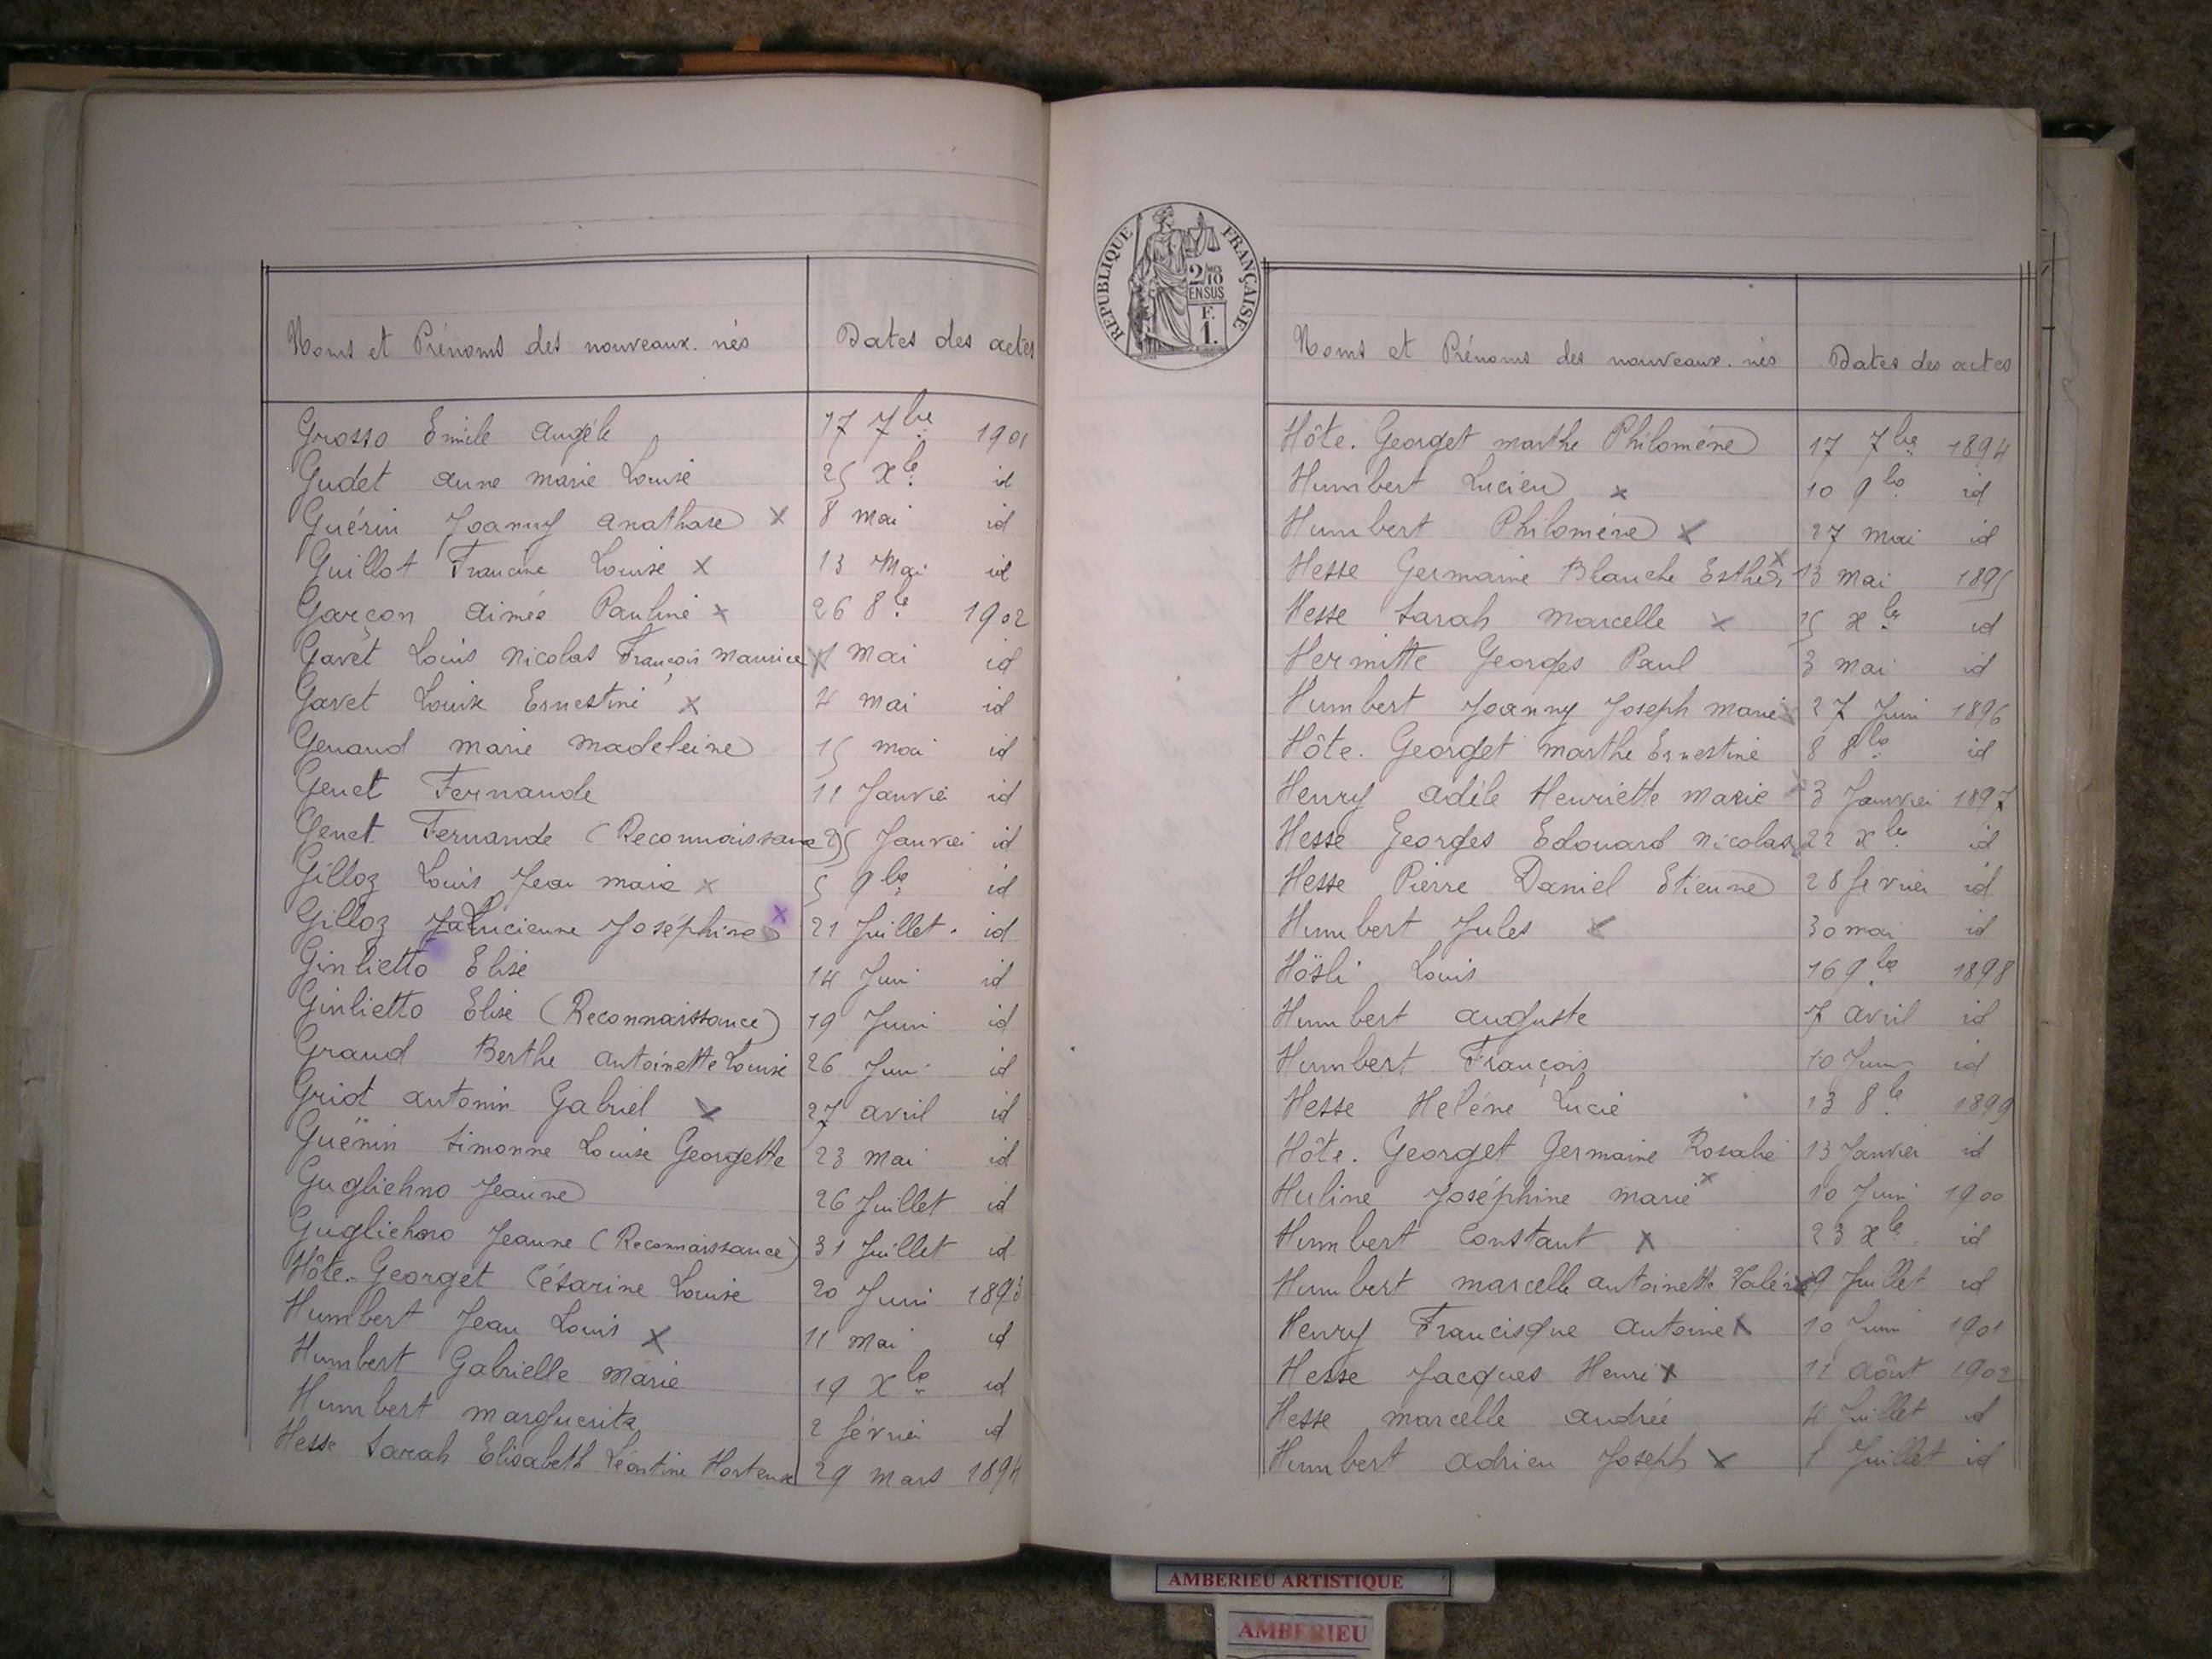 Noms et Prénoms des nouveaux-nés Dates des actes
Grosso Emile Angèle 17 7bre 1901
Gudet Anne Marie Louise 25 Xbe id
Guérin Joanny Anathase x 8 Mai id
Guillot Francine Louise x 13 Mai id
Garçon Aimée Pauline x 26 8be 1902
Gavet Louis Nicolas François Maurice x 1 Mai id
Gavet Louise Ernestine x 4 Mai id
Genaud Marie Madeleine 15 Mai id
Genet Fernande 11 Janvier id
Genet Fernande (Reconnaissance) 25 Janvier id
Gilloz Louis Jean Marie x 5 9bre id
Gilloz Lucienne Joséphine x 21 Juillet id
Ginlietto Elise 14 Juin id
Ginlietto Elise (Reconnaissance) 19 Juin id
Graud Berthe Antoinette Louise 26 Juin id
Griot Antonin Gabriel x 27 Avril id
Guënin Simonne Louise Georgette 23 Mai id
Gugliehno Jeanne 26 Juillet id
Gugliehno Jeanne (Reconnaissance) 31 Juillet id
Hôte-Georget Césarine Louise 20 Juin 1893
Humbert Jean Louis x 11 Mai id
Humbert Gabrielle Marie 19 Xbre id
Humbert Marguerite 2 février id
Hesse Sarah Elisabeth Léontine Hortense 29 Mars 1894
REPUBLIQUE FRANÇAISE
2/10 MES
EN SUS
F.
1.
Noms et Prénoms des nouveaux-nés Dates des actes
Hôte-Georget Marthe Philoméne 17 7bre 1894
Humbert Lucien x 10 9bre id
Humbert Philoméne x 27 Mai id
Hesse Germaine Blanche Esther x 13 Mai 1895
Hesse Sarah Marcelle x 15 Xbre id
Hermitte Georges Paul 3 Mai id
Humbert Joanny Joseph Marie x 27 Juin 1896
Hôte-Georget Marthe Ernestine 8 8bre id
Henry Adèle Henriette Marie x 3 Janvier 1897
Hesse Georges Edouard Nicolas x 22 Xbre id
Hesse Pierre Daniel Etienne 28 février id
Humbert Jules x 30 Mai id
Hösli Louis 16 9bre 1898
Humbert Auguste 7 Avril id
Humbert François 10 Juin id
Hesse Heléne Lucie 13 8be 1899
Hôte-Georget Germaine Rosalie 13 Janvier id
Huline Joséphine Marie x 10 Juin 1900
Humbert Constant x 23 Xbe id
Humbert Marcelle Antoinette Valérie x 9 Juillet id
Henry Francisque Antoine x 10 Juin 1901
Hesse Jacques Henri x 11 Aôut 1902
Hesse Marcelle Andrée 4 Juillet id
Humbert Adrien Joseph x 1 Juillet id
AMBERIEU ARTISTIQUE
AMBERIEU